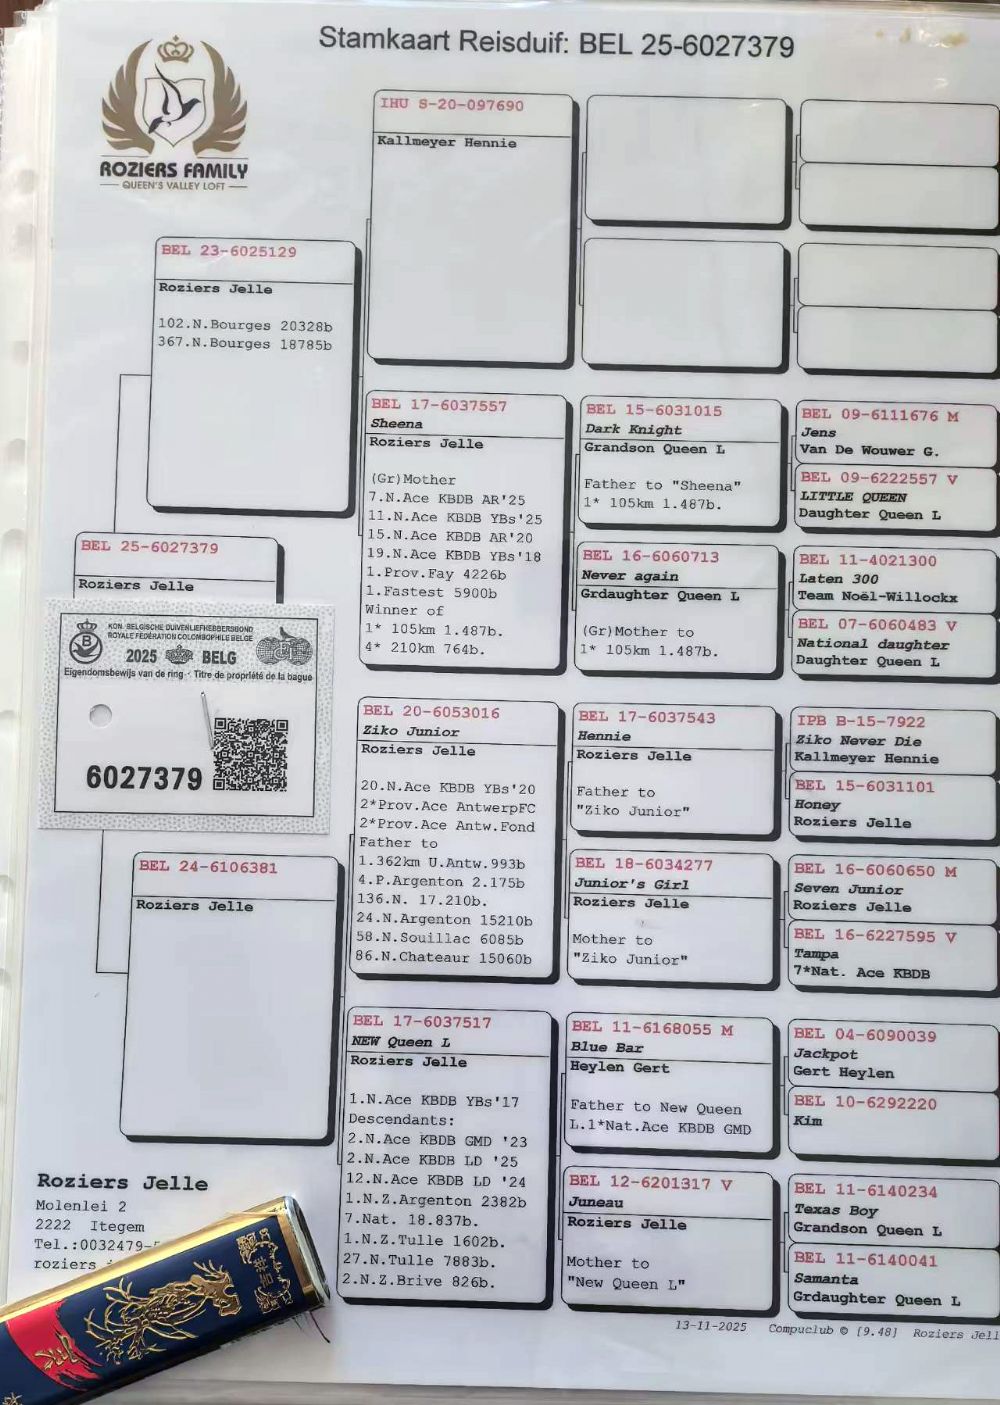 Stamkaart Reisduif: BEL 25-6027379
ROZIERS FAMILY
QUEEN'S VALLEY LOFT
BEL 25-6027379
Roziers Jelle
KON. BELGISCHE DUIVENLIEFHEBBERSBOND
ROYALE FÉDÉRATION COLOMBOPHILE BELGE
2025 BELG
Eigendomsbewijs van de ring - Titre de propriété de la bague
6027379
BEL 23-6025129
Roziers Jelle
102.N.Bourges 20328b
367.N.Bourges 18785b
BEL 24-6106381
Roziers Jelle
IHU S-20-097690
Kallmeyer Hennie
BEL 17-6037557
Sheena
Roziers Jelle
(Gr)Mother
7.N.Ace KBDB AR'25
11.N.Ace KBDB YBs'25
15.N.Ace KBDB AR'20
19.N.Ace KBDB YBs'18
1.Prov.Fay 4226b
1.Fastest 5900b
Winner of
1* 105km 1.487b.
4* 210km 764b.
BEL 20-6053016
Ziko Junior
Roziers Jelle
20.N.Ace KBDB YBs'20
2*Prov.Ace AntwerpFC
2*Prov.Ace Antw.Fond
Father to
1.362km U.Antw.993b
4.P.Argenton 2.175b
136.N. 17.210b.
24.N.Argenton 15210b
58.N.Souillac 6085b
86.N.Chateaur 15060b
BEL 17-6037517
NEW Queen L
Roziers Jelle
1.N.Ace KBDB YBs'17
Descendants:
2.N.Ace KBDB GMD '23
2.N.Ace KBDB LD '25
12.N.Ace KBDB LD '24
1.N.Z.Argenton 2382b
7.Nat. 18.837b.
1.N.Z.Tulle 1602b.
27.N.Tulle 7883b.
2.N.Z.Brive 826b.
BEL 15-6031015
Dark Knight
Grandson Queen L
Father to "Sheena"
1* 105km 1.487b.
BEL 16-6060713
Never again
Grdaughter Queen L
(Gr)Mother to
1* 105km 1.487b.
BEL 17-6037543
Hennie
Roziers Jelle
Father to
"Ziko Junior"
BEL 18-6034277
Junior's Girl
Roziers Jelle
Mother to
"Ziko Junior"
BEL 11-6168055 M
Blue Bar
Heylen Gert
Father to New Queen
L.1*Nat.Ace KBDB GMD
BEL 12-6201317 V
Juneau
Roziers Jelle
Mother to
"New Queen L"
BEL 09-6111676 M
Jens
Van De Wouwer G.
BEL 09-6222557 V
LITTLE QUEEN
Daughter Queen L
BEL 11-4021300
Laten 300
Team Noël-Willockx
BEL 07-6060483 V
National daughter
Daughter Queen L
IPB B-15-7922
Ziko Never Die
Kallmeyer Hennie
BEL 15-6031101
Honey
Roziers Jelle
BEL 16-6060650 M
Seven Junior
Roziers Jelle
BEL 16-6227595 V
Tampa
7*Nat. Ace KBDB
BEL 04-6090039
Jackpot
Gert Heylen
BEL 10-6292220
Kim
BEL 11-6140234
Texas Boy
Grandson Queen L
BEL 11-6140041
Samanta
Grdaughter Queen L
Roziers Jelle
Molenlei 2
2222 Itegem
Tel.:0032479-
roziers
13-11-2025 Compuclub © [9.48] Roziers Jell